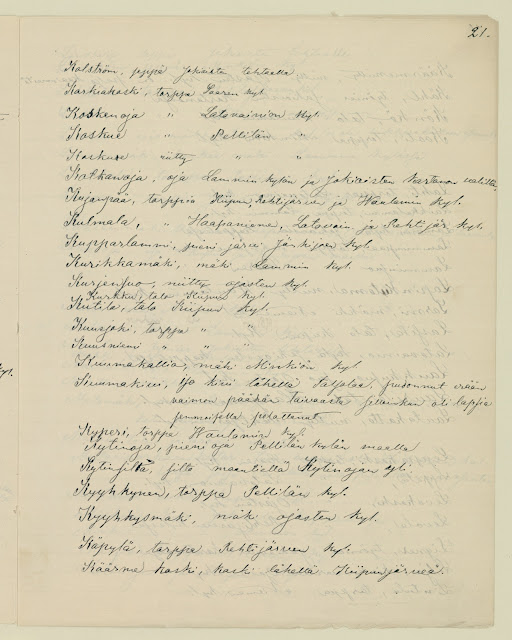 21.
Kolström, torppa Jokioisten tehtaalla
Koskiakoski, torppa Saaren kyl.
Koskenoja " Latovainion kyl.
Koskue " Pellilän "
Koskuse niitty " "
Kotkanoja, oja Lammin kylän ja Jokioisten kartanon välillä
Kujanpää, torppia Kiipun, Rehtijärven ja Haulamin kyl.
Kulmala, " Haapaniemen, Latovain ja Rehtijär. kyl.
Kupparlammi, pieni järvi Jänhijoen kyl.
Kurikkamäki, mäki Lammin kyl.
Kurjensuo, niitty ojasten kyl.
Kurkku, talo Kiipun kyl.
Kutila, talo Kiipun kyl.
Kuusjoki, torppa " "
Kuusniemi " " "
Kuumakallio, mäki Minkiön kyl.
Kuumakivi, iso kivi lähellä pudonnut erään
vaimon päähän taivaasta oli lapsia
polttanut
Kyperi, torppa Haulamin kyl.
Kytinoja, pieni oja Pellilän kylän maalla
Kytinsilta, silta maantiellä Kytinojan yli.
Kyyhkynen, torppa Pellilän kyl.
Kyyhkysmäki, mäk ojasten kyl.
Käpylä, torppa Rehtijärven kyl.
Käärme koski, koski lähellä Kiipunjärveä.